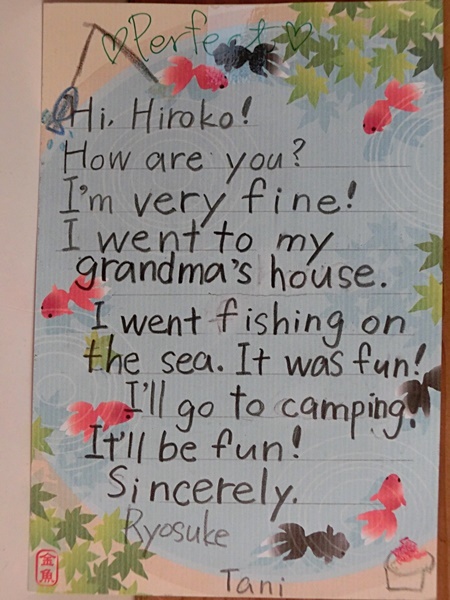 ♡Perfect♡
Hi, Hiroko!
How are you?
I'm very fine!
I went to my
grandma's house.
I went fishing on
the sea. It was fun!
I'll go to camping!
It'll be fun!
Sincerely.
Ryosuke
Tani
金魚